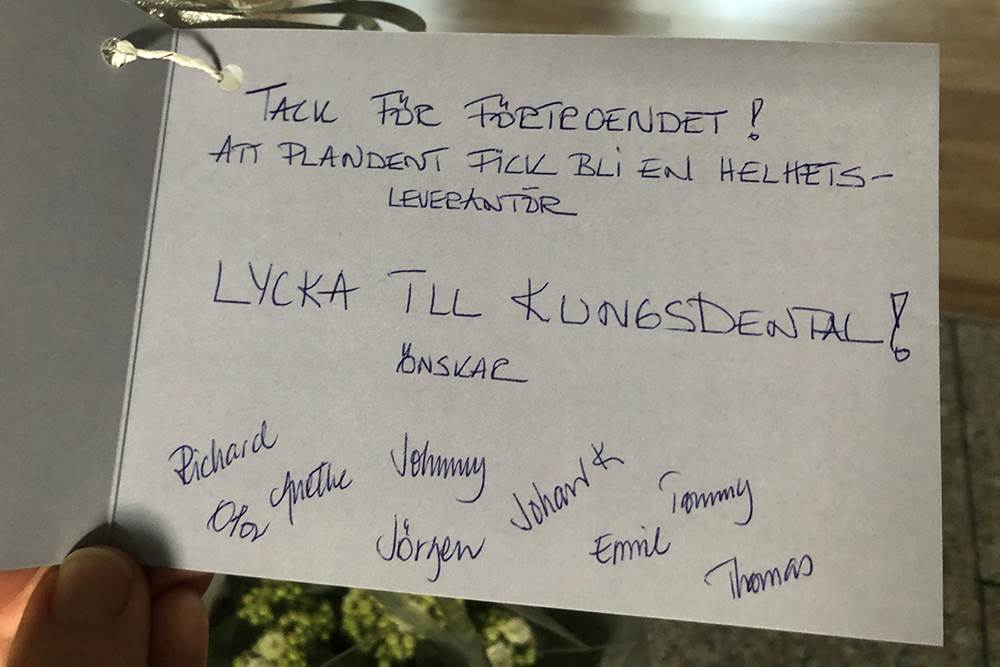 TACK FÖR FÖRTROENDET!
ATT PLANDENT FICK BLI EN HELHETS-
LEVERANTÖR
LYCKA TILL KUNGSDENTAL!
ÖNSKAR
Richard
Grethe
Johnny
Johan K
Tommy
Jörgen
Emil
Thomas